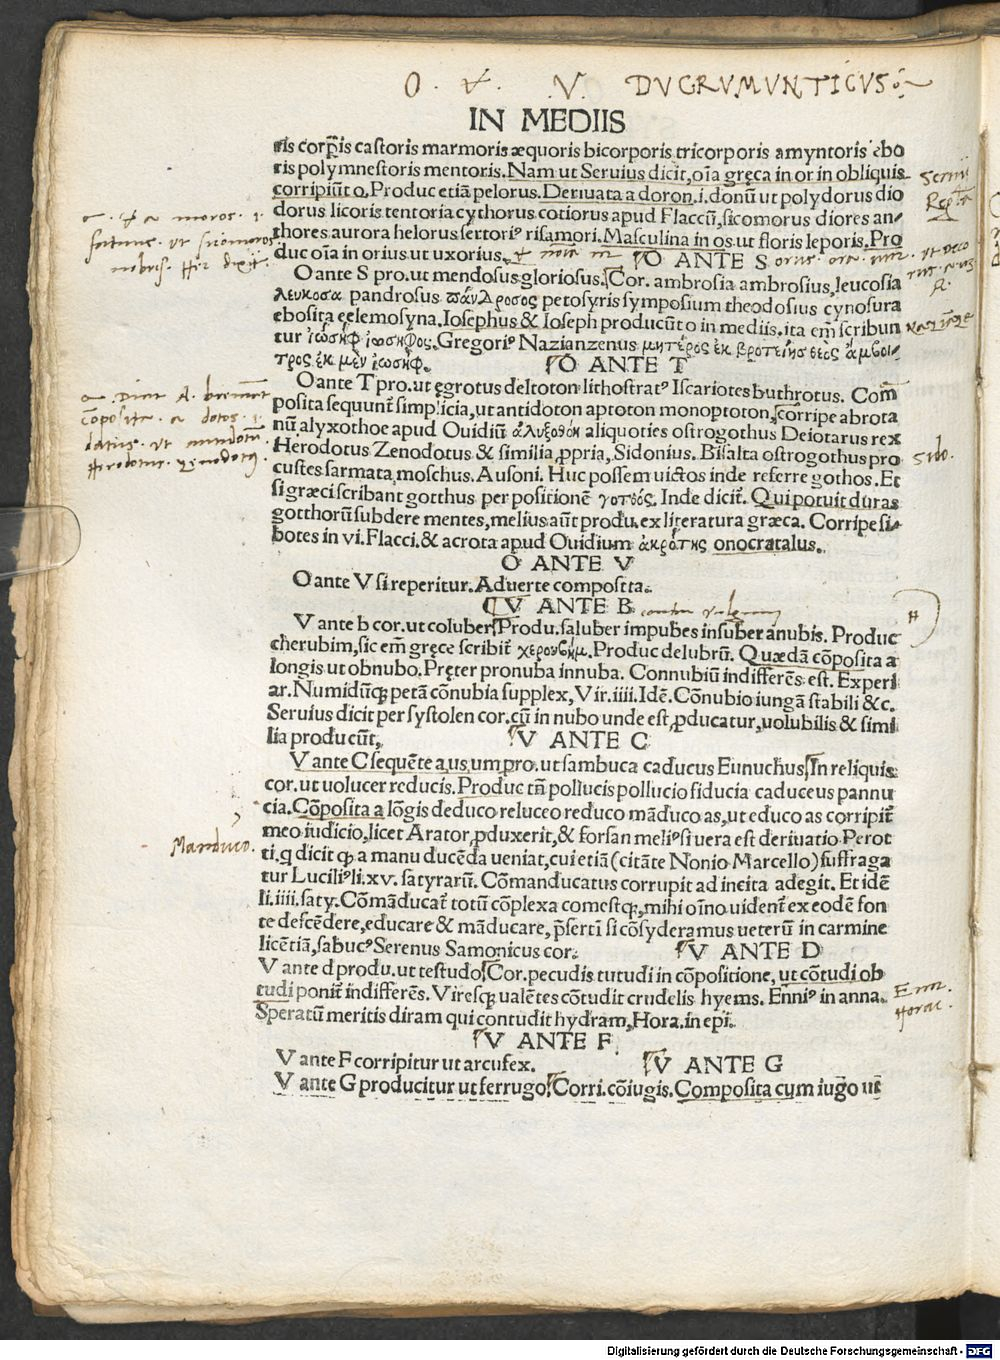 O. & . V. DVCRVMVNTICVS
IN MEDIIS
ris corꝑis castoris marmoris æquoris bicorporis tricorporis amyntoris ebo
ris polymnestoris mentoris. Nam ut Seruius dicit, oīa gręca in or in obliquis
corripiūt o. Produc etiā pelorus. Deriuata a doron .i. donū ut polydorus dio
dorus licoris tentoria cythorus cotiorus apud Flaccū, sicomorus diores an-
thores aurora helorus sertoriꝰ risamori. Masculina in os ut floris leporis. Pro
duc oīa in orius ut uxorius.
O ANTE S
O ante S pro. ut mendosus gloriosus. Cor. ambrosia ambrosius, leucosia
λευκοσα pandrosus πάνδροσος petosyris symposium theodosius cynosura
ebosita eelemosyna. Iosephus & Ioseph producūt o in mediis. ita em̄ scribun
tur ἰωσὴφ ἰωσηφος. Gregoriꝰ Nazianzenus μητέρος ἐκ βροτείης θεὸς ἄμβοι-
τρος ἐκ μὲν ἰωσήφ.
O ANTE T
O ante T pro. ut ęgrotus deltoton lithostratꝰ Iscariotes buthrotus. Com
posita sequunt̄ simplicia, ut antidoton aptoton monoptoton, corripe abrota
nū alyxothoe apud Ouidiū ἀλυξοθόη aliquoties ostrogothus Deiotarus rex
Herodotus Zenodotus & similia ꝓpria, Sidonius. Bisalta ostrogothus pro
custes sarmata moschus. Ausoni. Huc possem uictos inde referre gothos. Et
si græci scribant gotthus per positionē γοτθός. Inde dicit̄. Qui potuit duras
gotthorū subdere mentes, melius aūt produ. ex literatura græca. Corripe si-
botes in vi. Flacci. & acrota apud Ouidium ἀκρότης onocratalus.
O ANTE V
O ante V si reperitur. Aduerte composita.
V ANTE B
V ante b cor. ut coluber. Produ. saluber impubes insuber anubis. Produc
cherubim, sic em̄ gręce scribit̄ χερουβημ. Produc delubrū. Quædā cōposita a
longis ut obnubo. Pręter pronuba innuba. Connubiū indifferēs est. Experi
ar. Numidūq; petā cōnubia supplex, Vir. iiii. Idē. Cōnubio iungā stabili & c.
Seruius dicit per systolen cor. cū in nubo unde est, ꝓducatur, uolubilis & simi
lia producūt.
V ANTE C
V ante C sequēte a, us, um pro. ut sambuca caducus Eunuchus. In reliquis
cor. ut uolucer reducis. Produc tn̄ pollucis pollucio fiducia caduceus pannu
cia. Cōposita a lōgis deduco reluceo reduco māduco as, ut educo as corripit̄
meo iudicio, licet Arator ꝓduxerit, & forsan meliꝰ si uera est deriuatio Perot
ti. q dicit ꝙ a manu ducēda ueniat, cui etiā (citāte Nonio Marcello) suffraga
tur Luciliꝰ li. xv. satyrarū. Cōmanducatus corrupit ad incita adegit. Et idē
li. iiii. saty. Cōmāducat̄ totū cōplexa comestq;, mihi oīno uident̄ ex eodē fon
te descēdere, educare & māducare, p̄sertī si cōsyderamus ueterū in carmine
licētiā, sabucꝰ Serenus Samonicus cor.
V ANTE D
V ante d produ. ut testudo. Cor. pecudis tutudi in cōpositione, ut cōtudi ob
tudi ponit̄ indifferēs. Viresq; ualētes cōtudit crudelis hyems. Enniꝰ in anna.
Speratū meritis diram qui contudit hydram, Hora. in epi.
V ANTE F
V ante F corripitur ut arcufex.
V ANTE G
V ante G producitur ut ferrugo. Corri. cōiugis. Composita cum iugo ut
Sido.
Manduco.
Enn.
Horac.
Digitalisierung gefördert durch die Deutsche Forschungsgemeinschaft - DFG